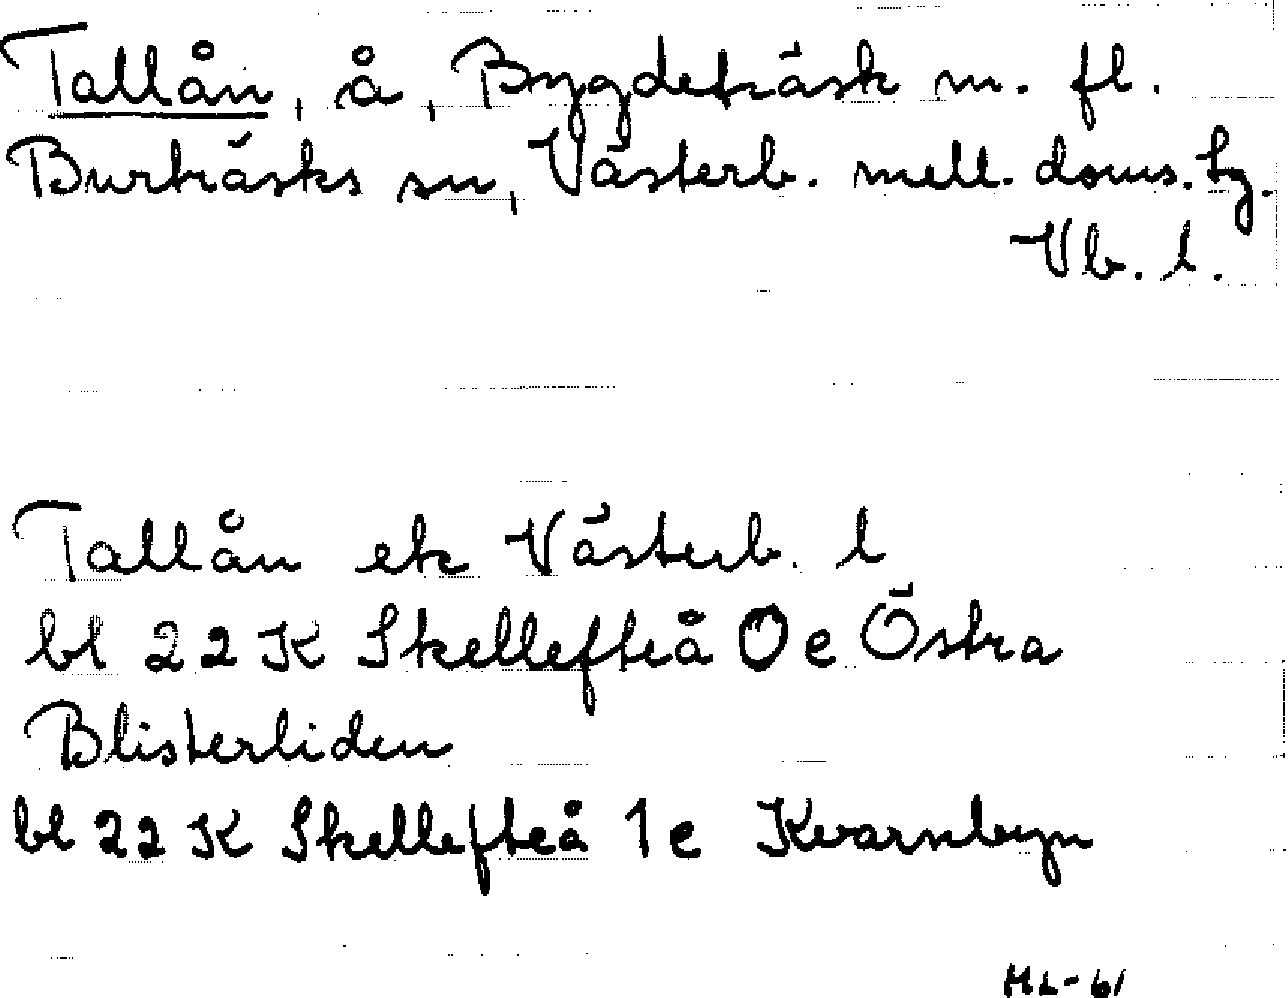 Tallån, å, Bygdeträsk m. fl.
Burträsks sn, Västerb. mell. doms. tg.
Vb. l.
Tallån ek Västerb. l
bl 22 K Skellefteå 0 e Östra
Blisterliden
bl 22 K Skellefteå 1 e Kvarnbyn
ML-61